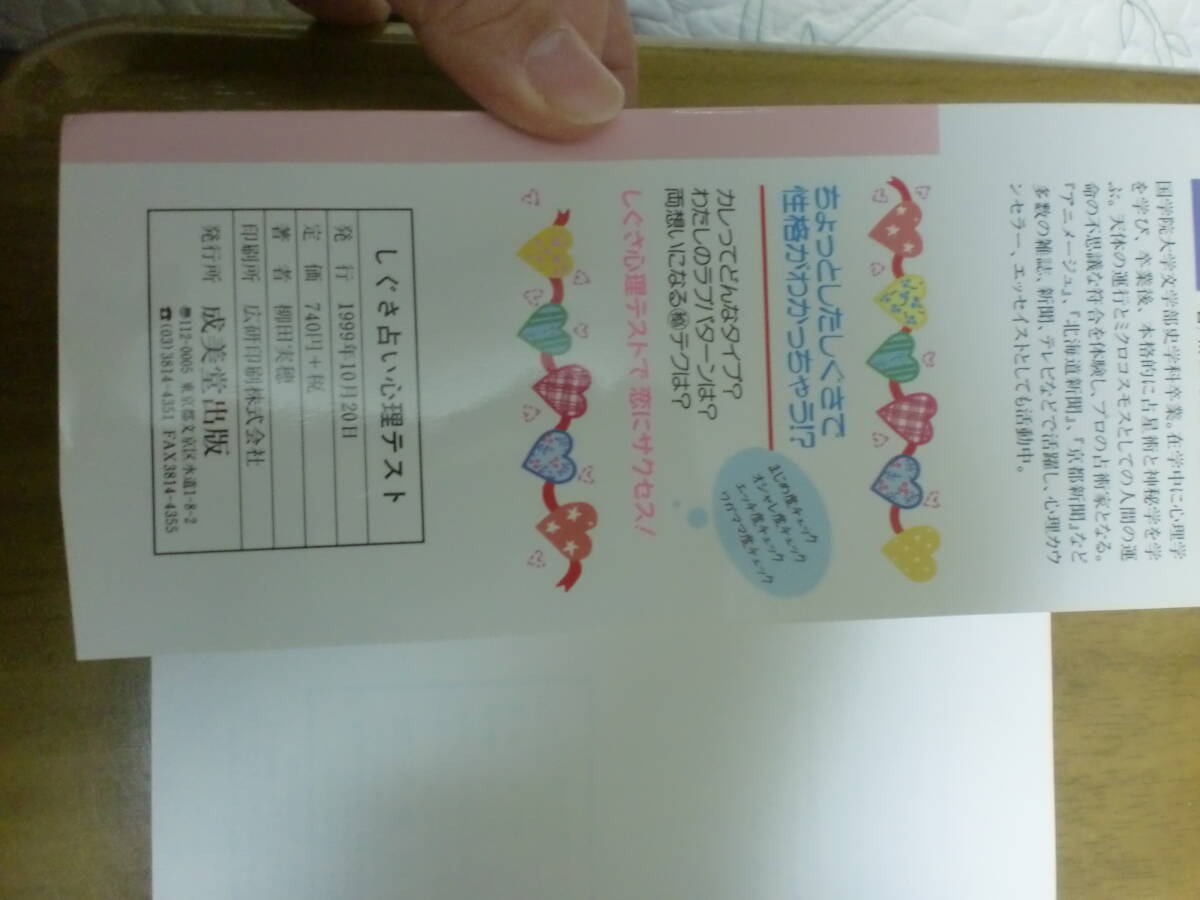 国学院大学文学部史学科卒業。在学中に心理学
を学び、卒業後、本格的に占星術と神秘学を学
ぶ。天体の運行とミクロコスモスとしての人間の運
命の不思議な符合を体験し、プロの占術家となる。
『アニメージュ』、『北海道新聞』、『京都新聞』など
多数の雑誌、新聞、テレビなどで活躍し、心理カウ
ンセラー、エッセイストとしても活動中。
ちょっとしたしぐさで
性格がわかっちゃう!?
まじめ度チェック
オシャレ度チェック
エッチ度チェック
ワガママ度チェック
カレってどんなタイプ?
わたしのラブパターンは?
両想いになる㊙テクは?
しぐさ心理テストで恋にサクセス!
しぐさ占い心理テスト
発 行 1999年10月20日
定 価 740円+税
著 者 柳田実穂
印刷所 広研印刷株式会社
発行所 成美堂出版
〠112-0005 東京都文京区水道1-8-2
☎(03)3814-4351 FAX3814-4355